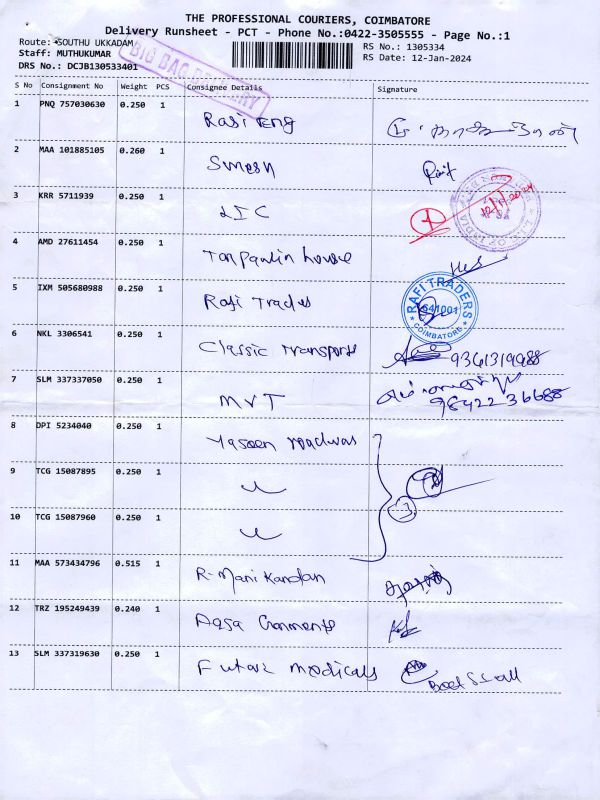 THE PROFESSIONAL COURIERS, COIMBATORE
Delivery Runsheet - PCT - Phone No.:0422-3505555 - Page No.:1
Route: SOUTHU UKKADAM RS No.: 1305334
Staff: MUTHUKUMAR RS Date: 12-Jan-2024
DRS No.: DCJB130533401
BIG BAG DELIVERY
S No Consignment No Weight PCS Consignee Details Signature
1 PNQ 757030630 0.250 1 Rasi Eng
2 MAA 101885105 0.260 1 Suresh
3 KRR 5711939 0.250 1 LIC
4 AMD 27611454 0.250 1 Tarpaulin house
5 IXM 505680988 0.250 1 Rafi Trades
RAFI TRADERS
641001
COIMBATORE
6 NKL 3306541 0.250 1 Classic Transports 9361319988
7 SLM 337337050 0.250 1 MVT 98422 36688
8 DPI 5234040 0.250 1 Yaseen
9 TCG 15087895 0.250 1
10 TCG 15087960 0.250 1
11 MAA 573434796 0.515 1 R-Mani Kandan
12 TRZ 195249439 0.240 1 Aqsa Garments
13 SLM 337319630 0.250 1 Future medicals